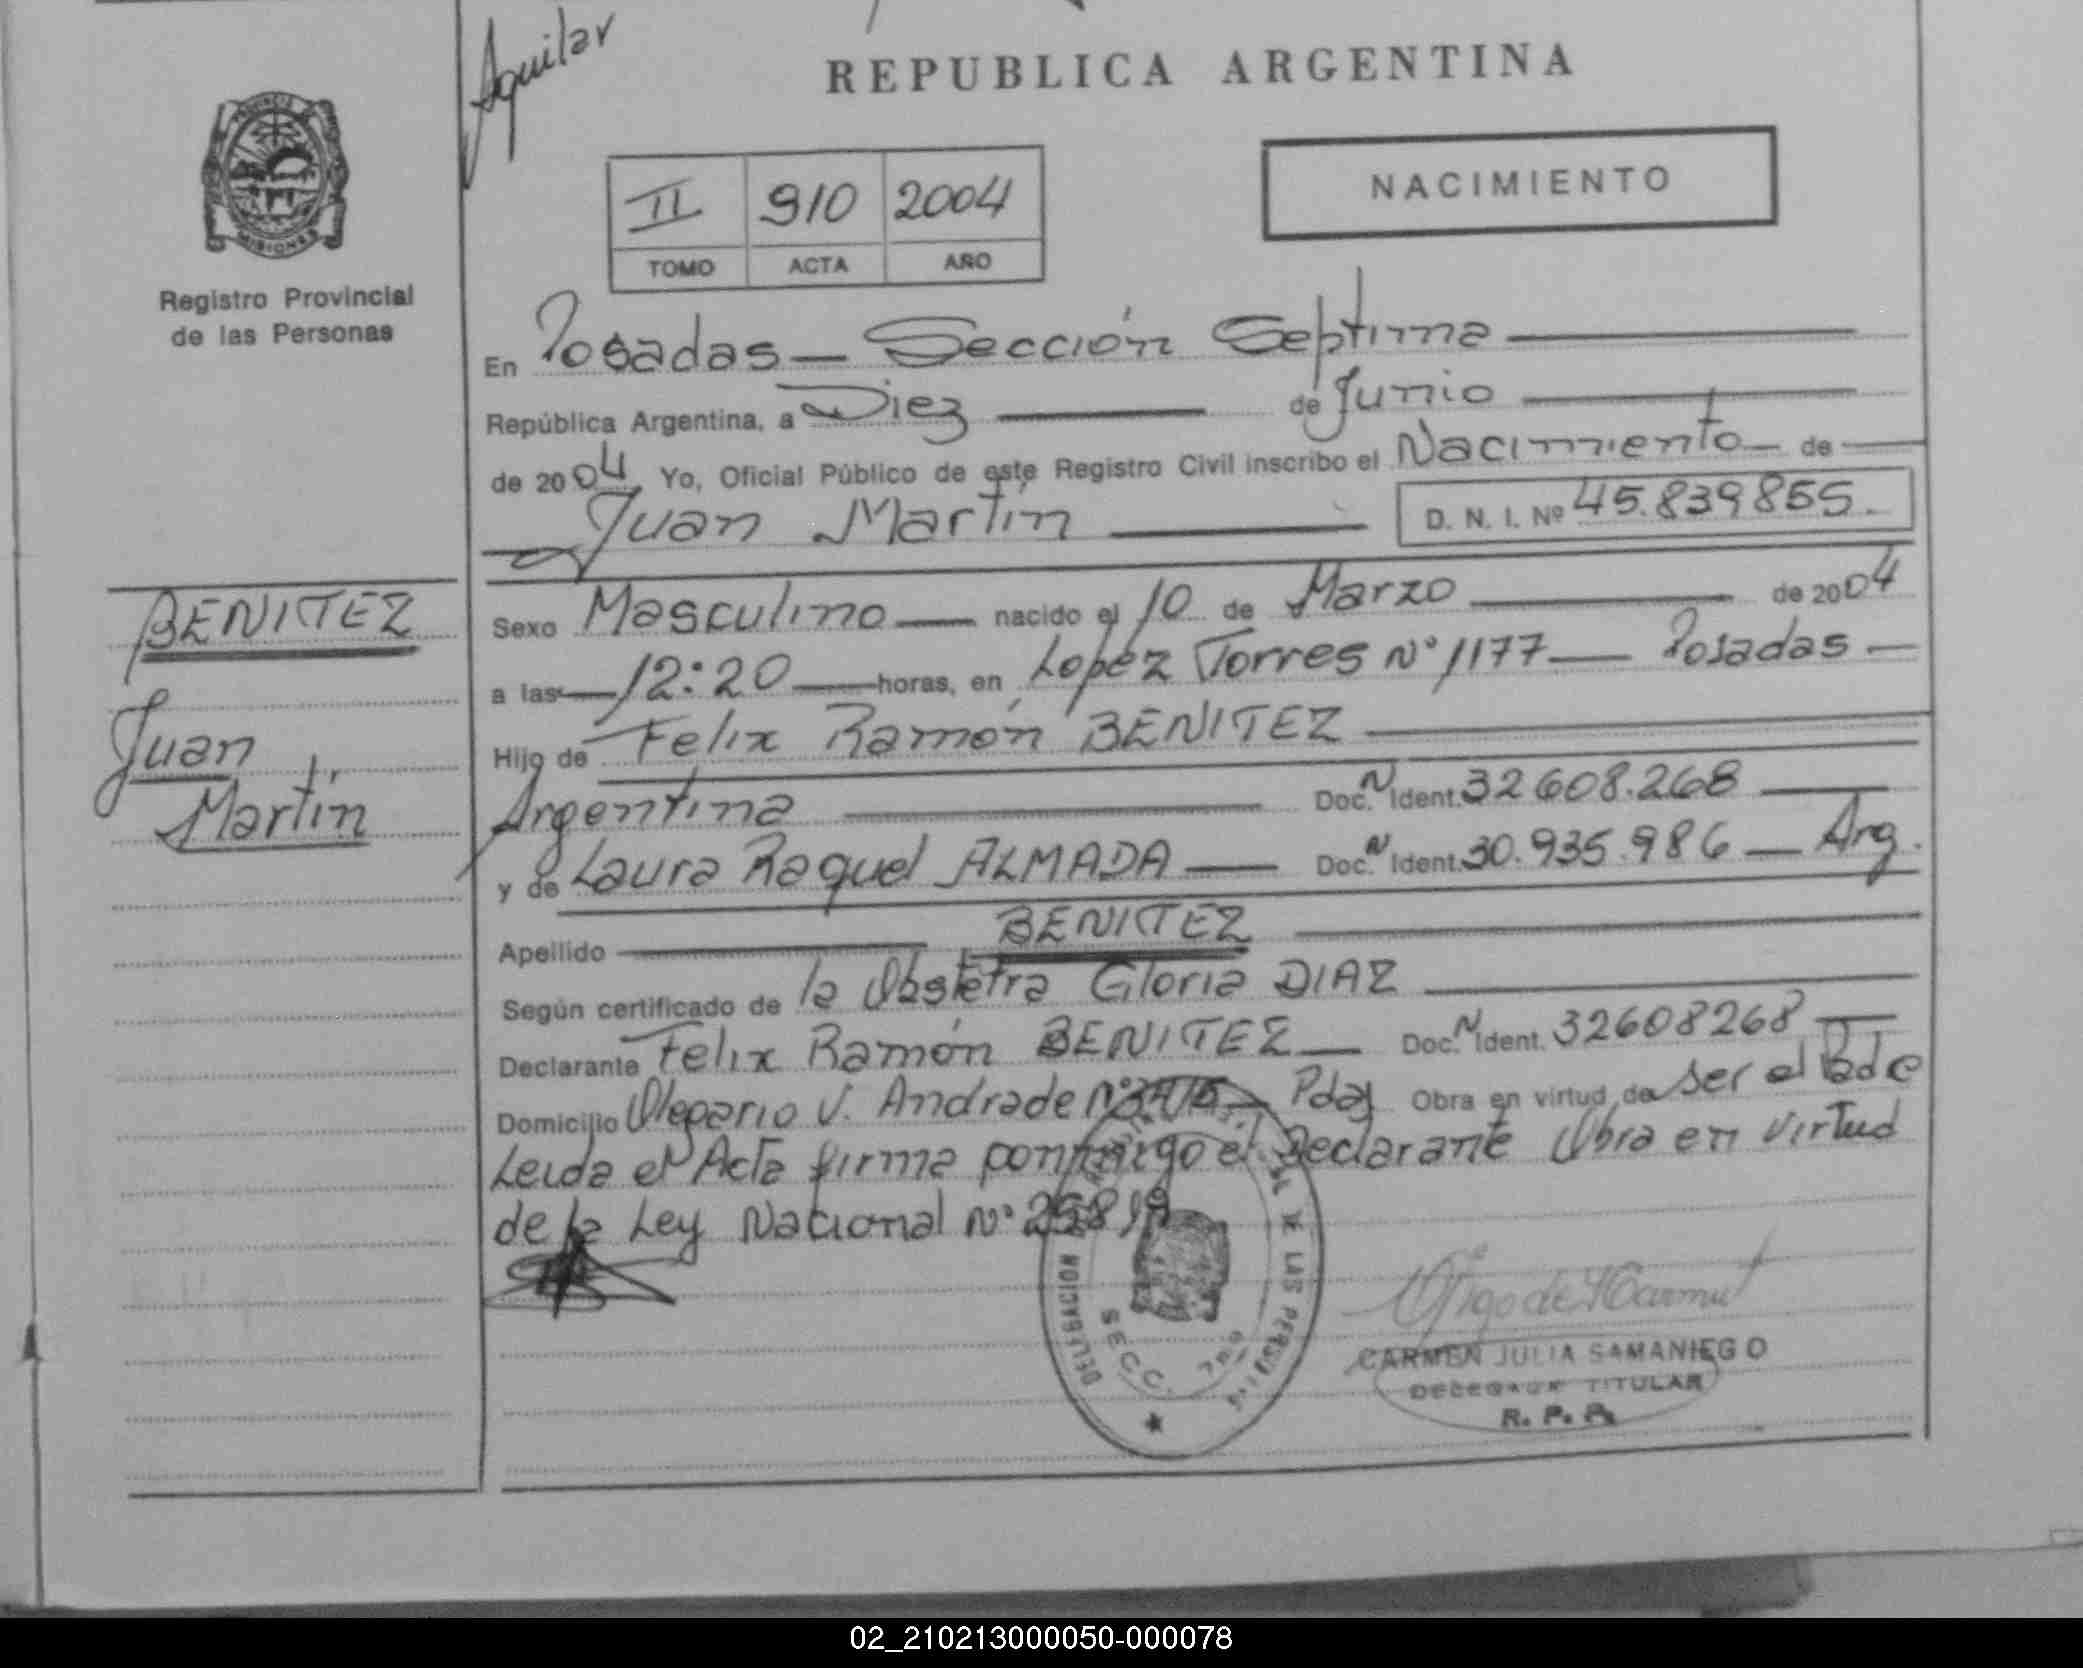 Aguilar
REPUBLICA ARGENTINA
PROVINCIA DE
MISIONES
Registro Provincial
de las Personas
II 910 2004
TOMO ACTA AÑO
NACIMIENTO
En Posadas — Sección Septima
República Argentina, a Diez de Junio
de 2004 Yo, Oficial Público de este Registro Civil inscribo el Nacimiento — de
Juan Martín D. N. I. Nº 45.839855.
BENITEZ
Juan
Martín
Sexo Masculino — nacido el 10 de Marzo de 2004
a las — 12:20 — horas, en Lopez Torres Nº 1177 — Posadas —
Hijo de Felix Ramón BENITEZ
Argentina Doc. N Ident. 32608.268
y de Laura Raquel ALMADA — Doc. N Ident. 30.935.986 — Arg.
Apellido BENITEZ
Según certificado de la Obstetra Gloria DIAZ
Declarante Felix Ramón BENITEZ — Doc. N Ident. 32608268
Domicilio Olegario V. Andrade — Pdas Obra en virtud de ser el Padre
Leida el Acta firma conmigo el Declarante Obra en virtud
de la Ley Nacional Nº 25819
DELEGACION DE LAS PERSONAS
SECC. 7ma
CARMEN JULIA SAMANIEGO
DELEGADA TITULAR
R. P. P.
02_210213000050-000078